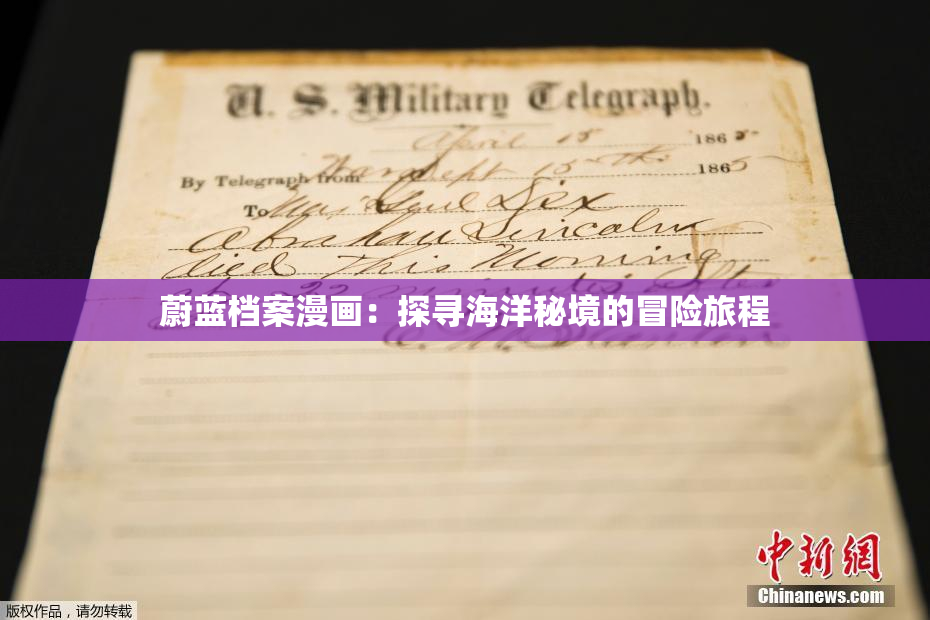 U. S. Military Telegraph.
April 15 1865
By Telegraph from War Dept 15th 1865
To Maj Genl Dix
Abraham Lincoln
died This Morning
at 22 minutes after
蔚蓝档案漫画：探寻海洋秘境的冒险旅程
E. M. Stanton
中新网
Chinanews.com
版权作品，请勿转载